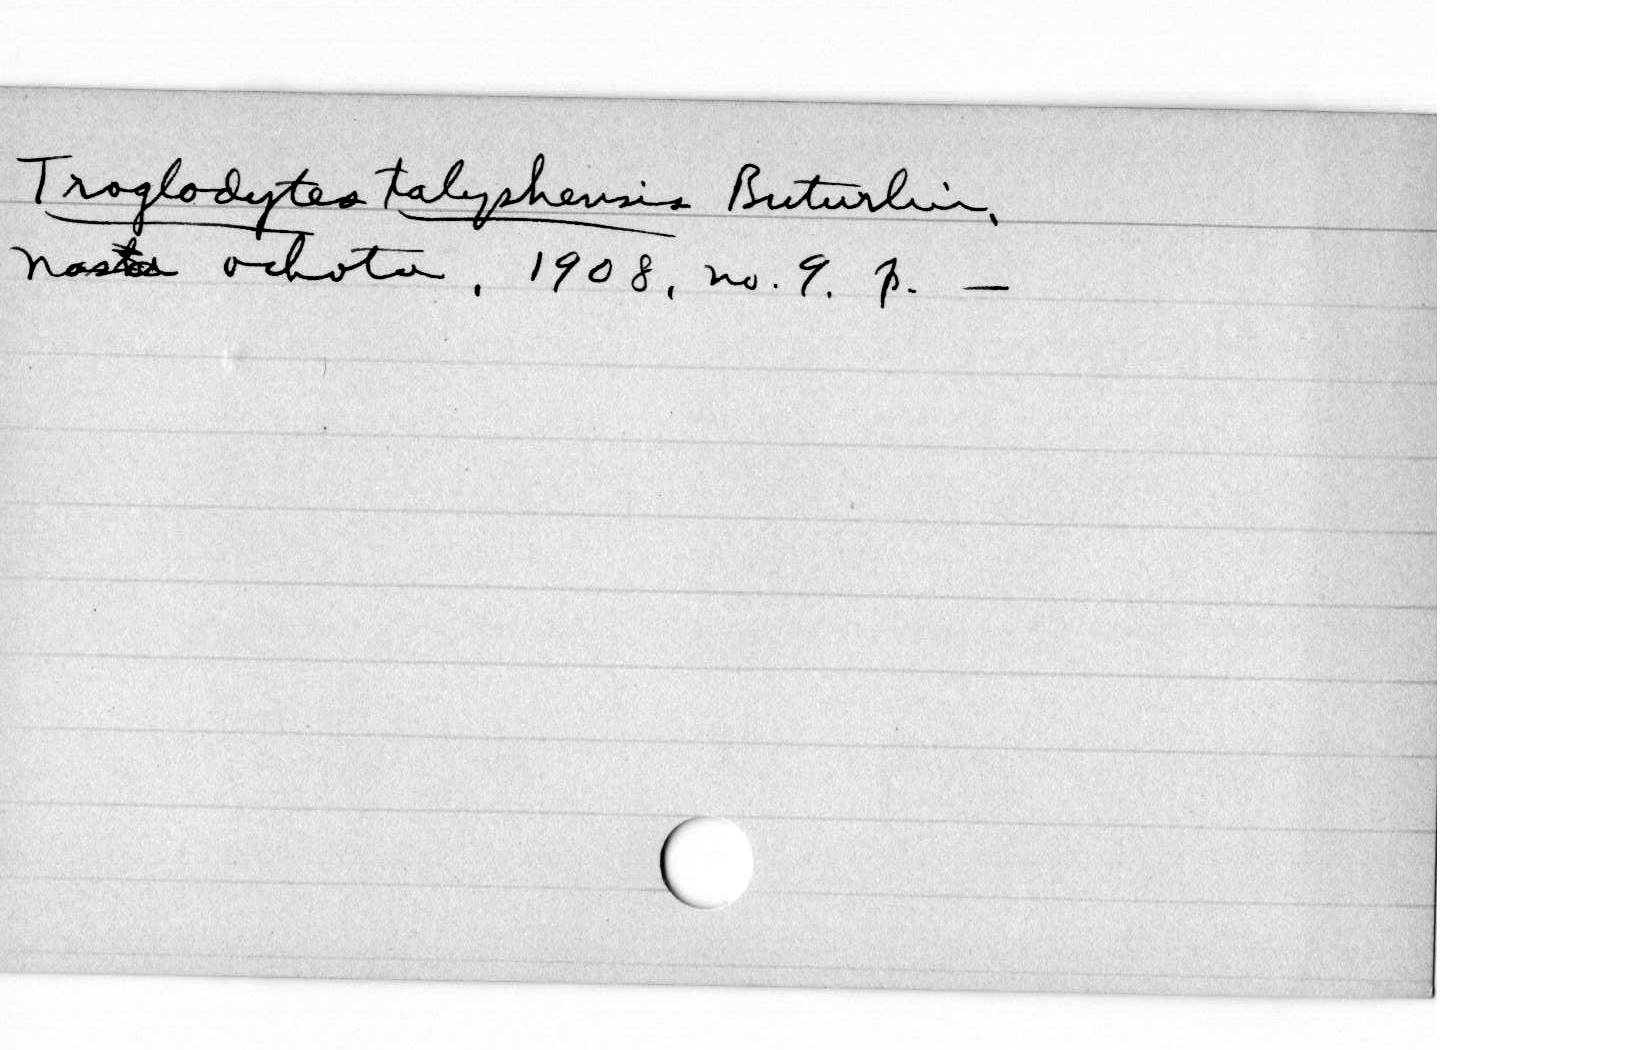 Troglodytes talyshensis Buturlin,
ochota, 1908, no. 9. p. —